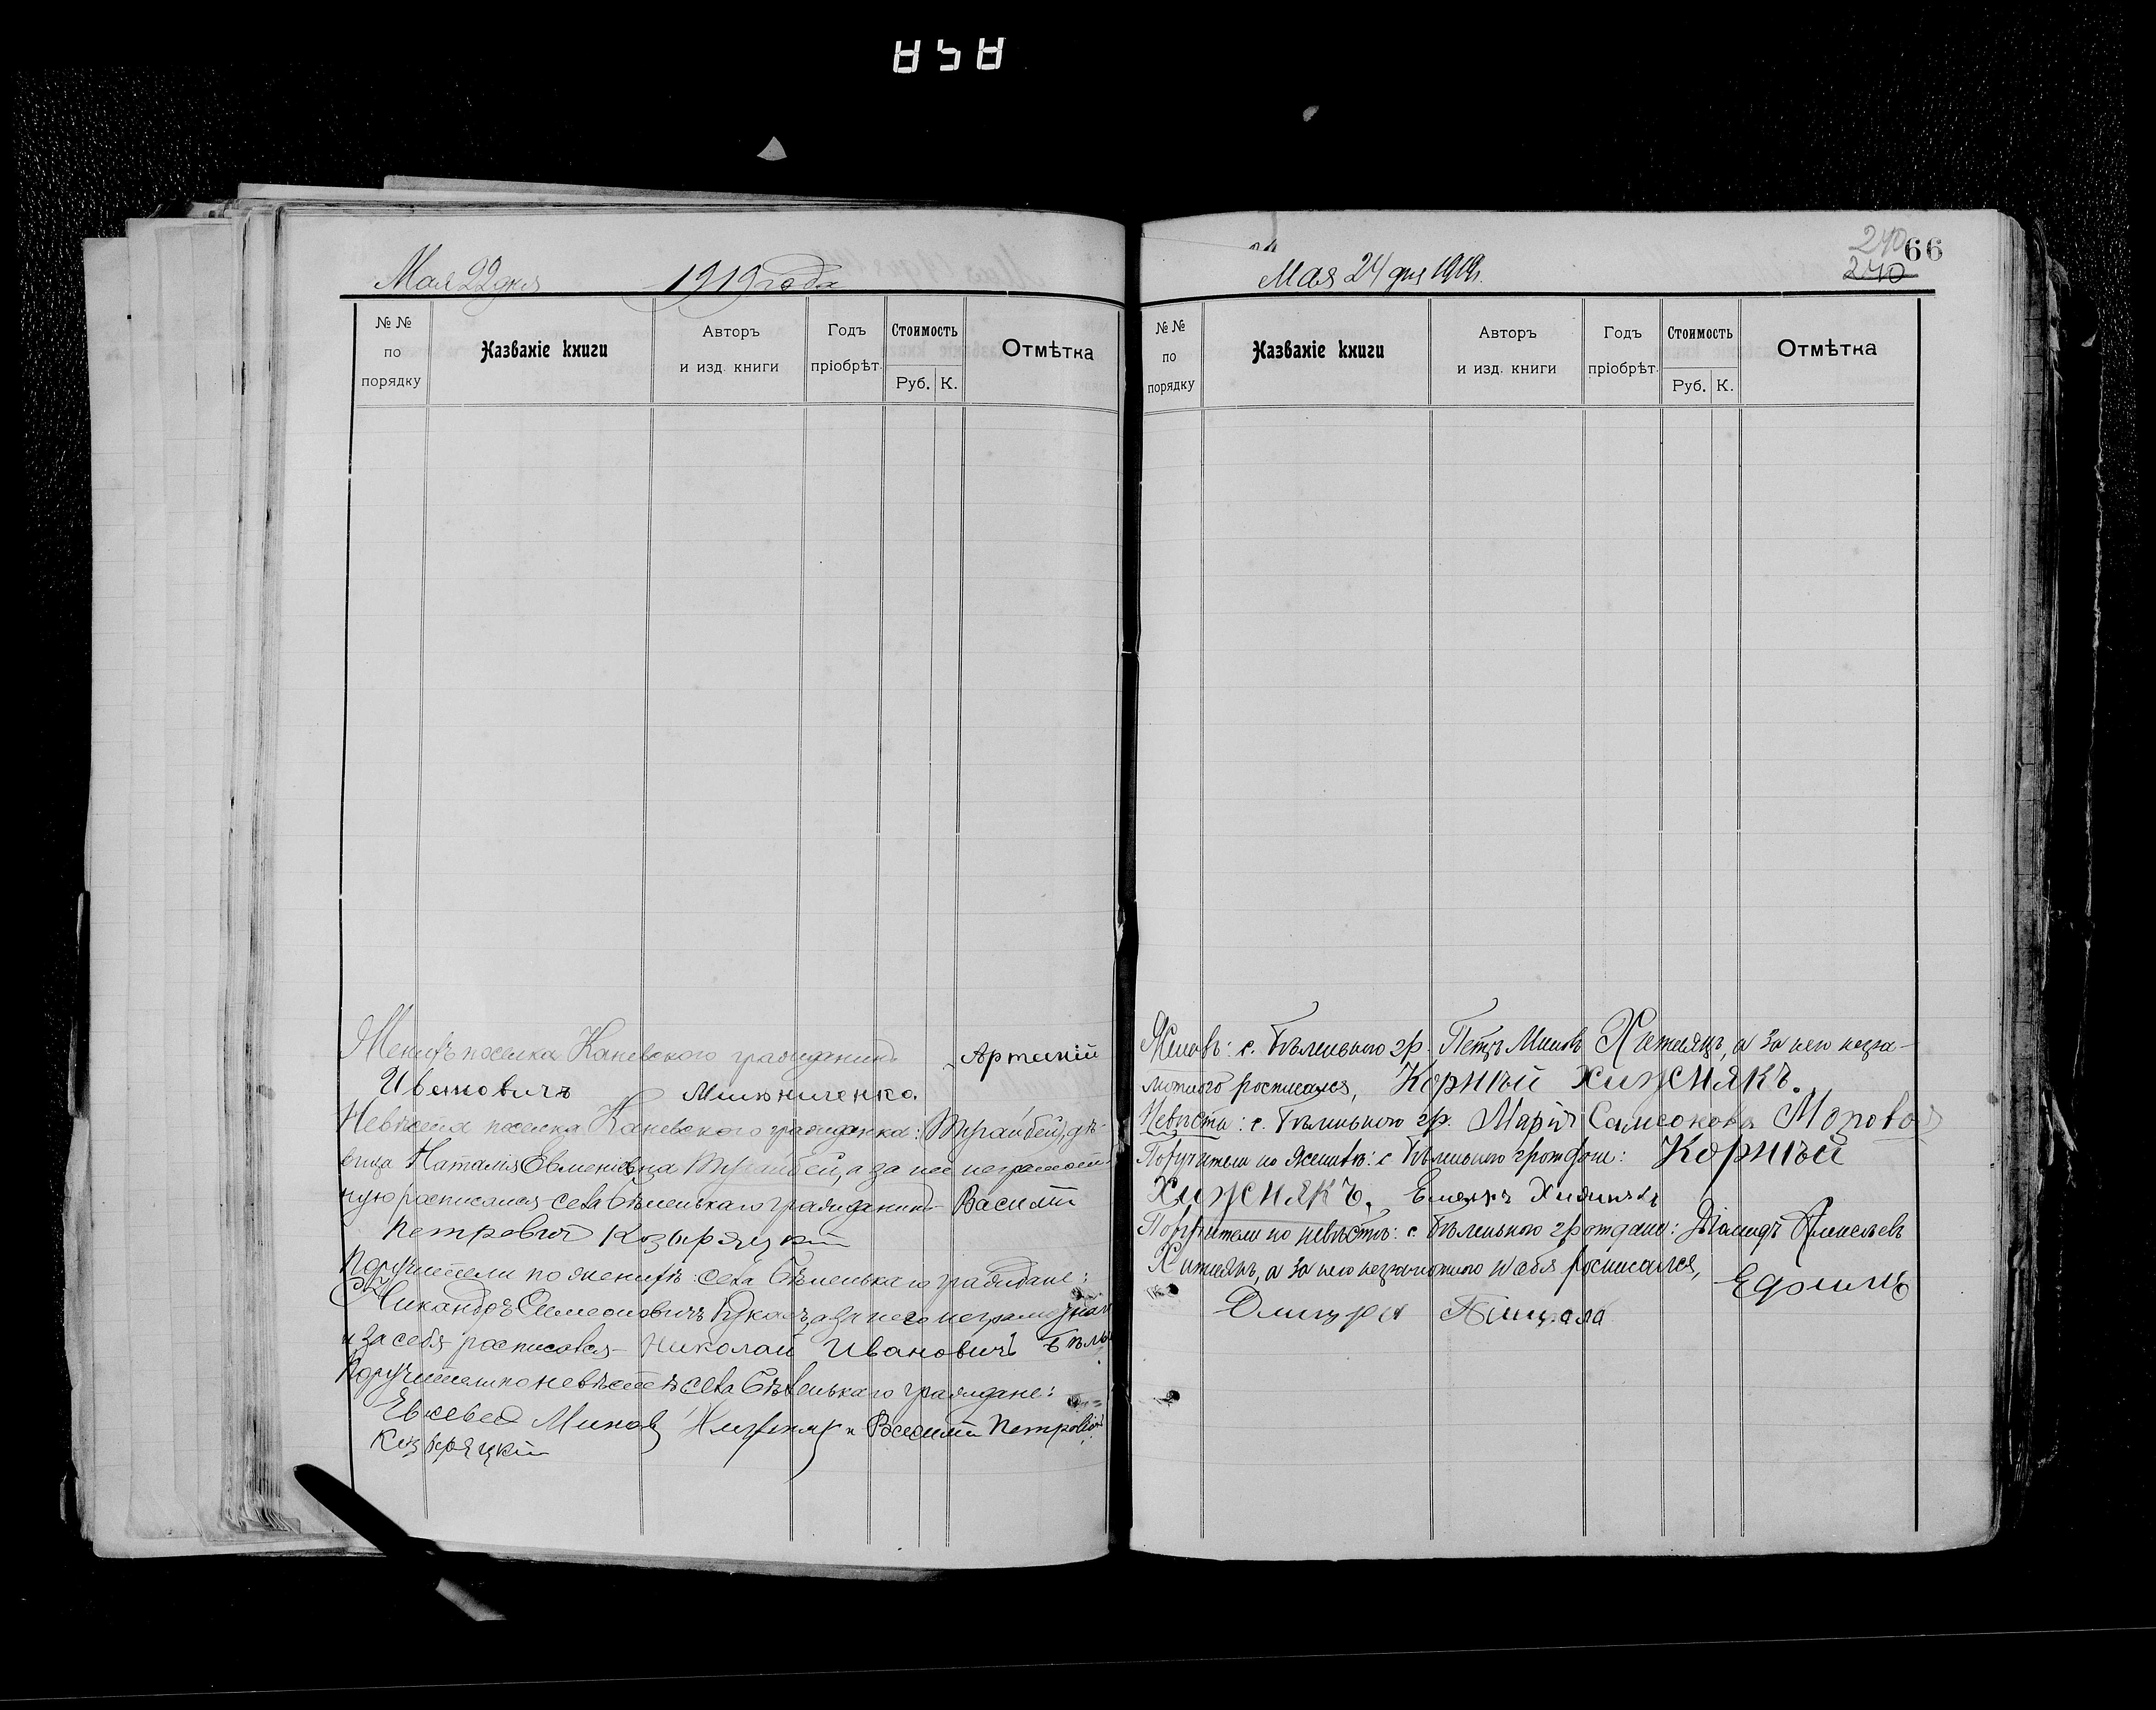 858
Мая 22 дня 1919 года
№№ по порядку
Названіе книги
Авторъ и изд. книги
Годъ пріобрѣт.
Стоимость
Руб. К.
Отмѣтка
Женихъ поселка Каневского гражданинъ Артемій
Ивановичъ Мельниченко.
Невѣста поселка Каневского гражданка: дѣ-
вица Наталія Евменіевна а за нее неграмот-
ную росписался села Бѣленькаго гражданинъ Василій
Петровичъ Козыряцкій
Поручители по женихѣ: села Бѣленькаго граждане:
Никандръ Симеоновичъ а за него неграмотнаго
и за себя росписался Николай Ивановичъ
Поручители по невѣстѣ села Бѣленькаго граждане:
Евсевей Минов и Василій Петровичъ
Козыряцкій
240
66
240
Мая 24 дня 1919 г.
№№ по порядку
Названіе книги
Авторъ и изд. книги
Годъ пріобрѣт.
Стоимость
Руб. К.
Отмѣтка
Женихъ: с. Бѣленького гр. Петръ Миновъ Хижнякъ, а за него негра-
мотного росписался, Корнѣй Хижнякъ.
Невѣста: с. Бѣленького гр. Марія Самсонова
Поручители по женихѣ: с. Бѣленького граждане: Корнѣй
Хижнякъ. Хижнякъ
Поручители по невѣстѣ: с. Бѣленького граждане:
Хижнякъ, а за него неграмотного и себя росписался, Ефимъ